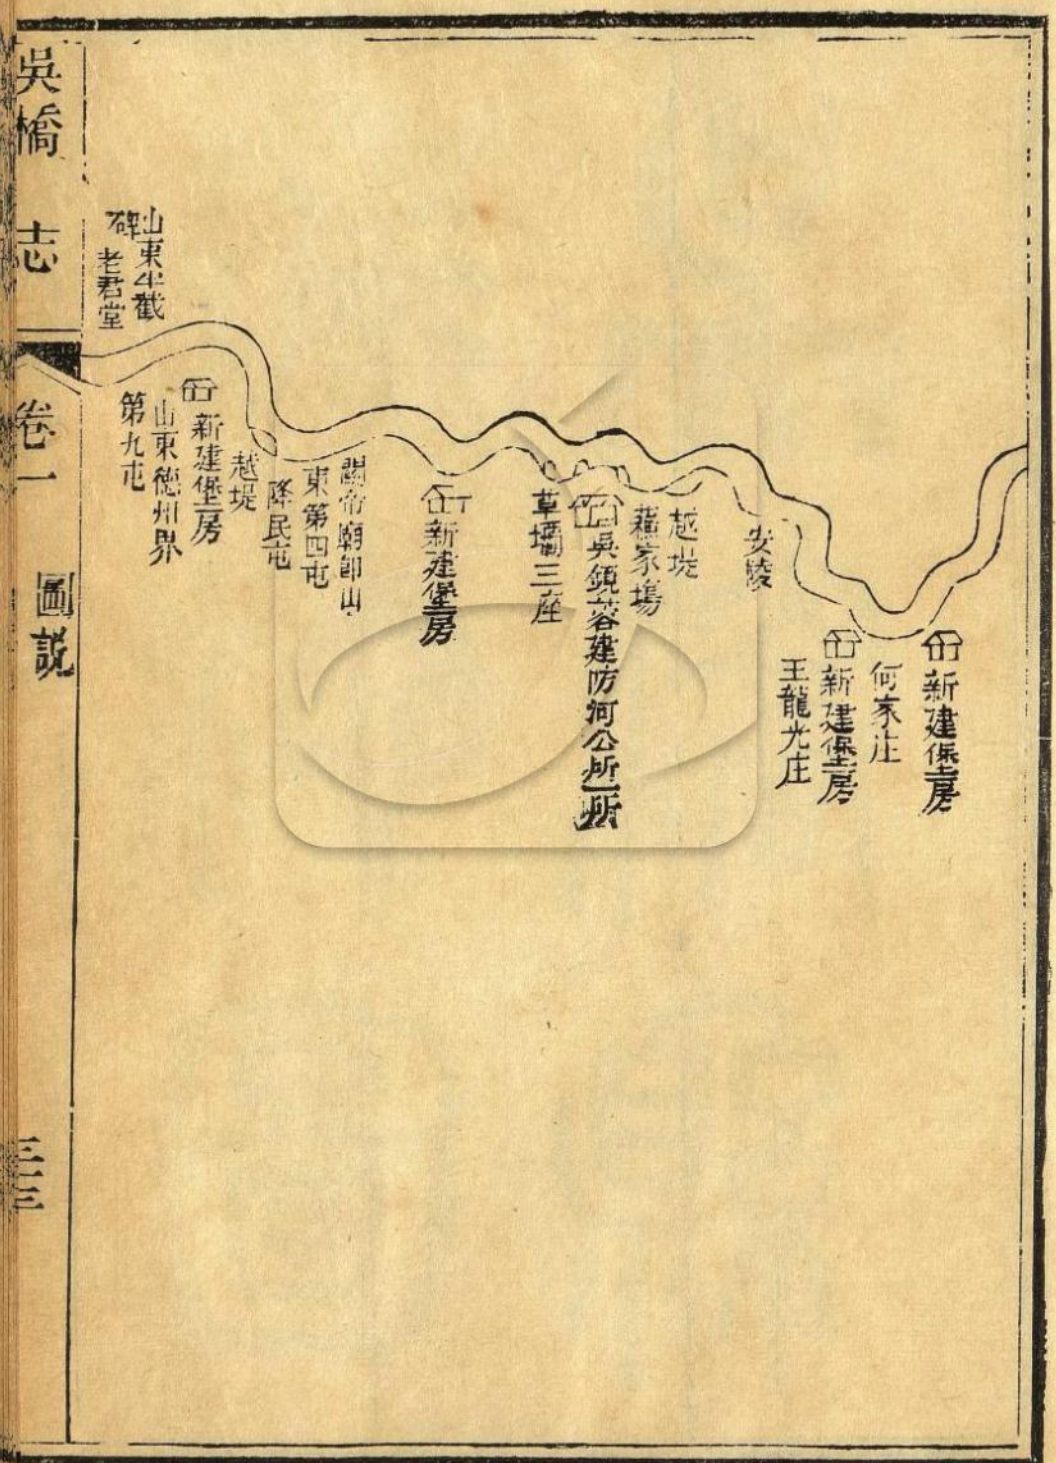 新建堡房
何家庄
新建堡房
王龍光庄
安陵
越堤
家塲
吳鎮
建防河公所一所
草壩三座
新建堡房
關帝廟即山
東第四屯
降民屯
越堤
新建堡房
山東德州界
第九屯
山東半截
碑 老君堂
吳橋 志
卷一
圖説